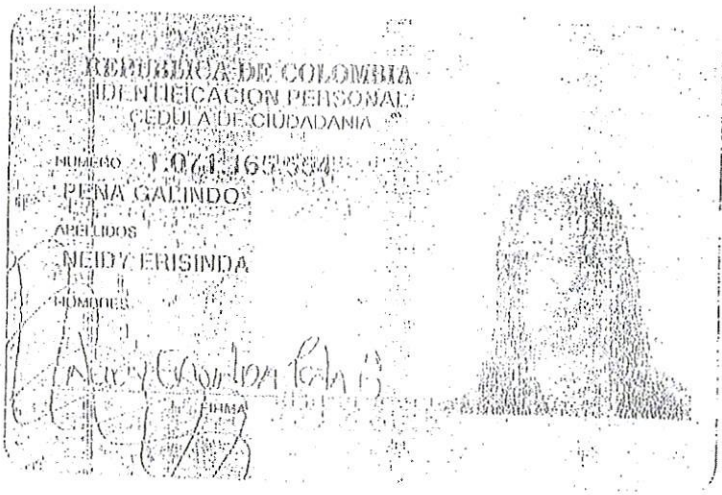 REPUBLICA DE COLOMBIA
IDENTIFICACION PERSONAL
CEDULA DE CIUDADANIA
NUMERO
PEÑA GALINDO
APELLIDOS
NEIDY ERISINDA
NOMBRES
FIRMA